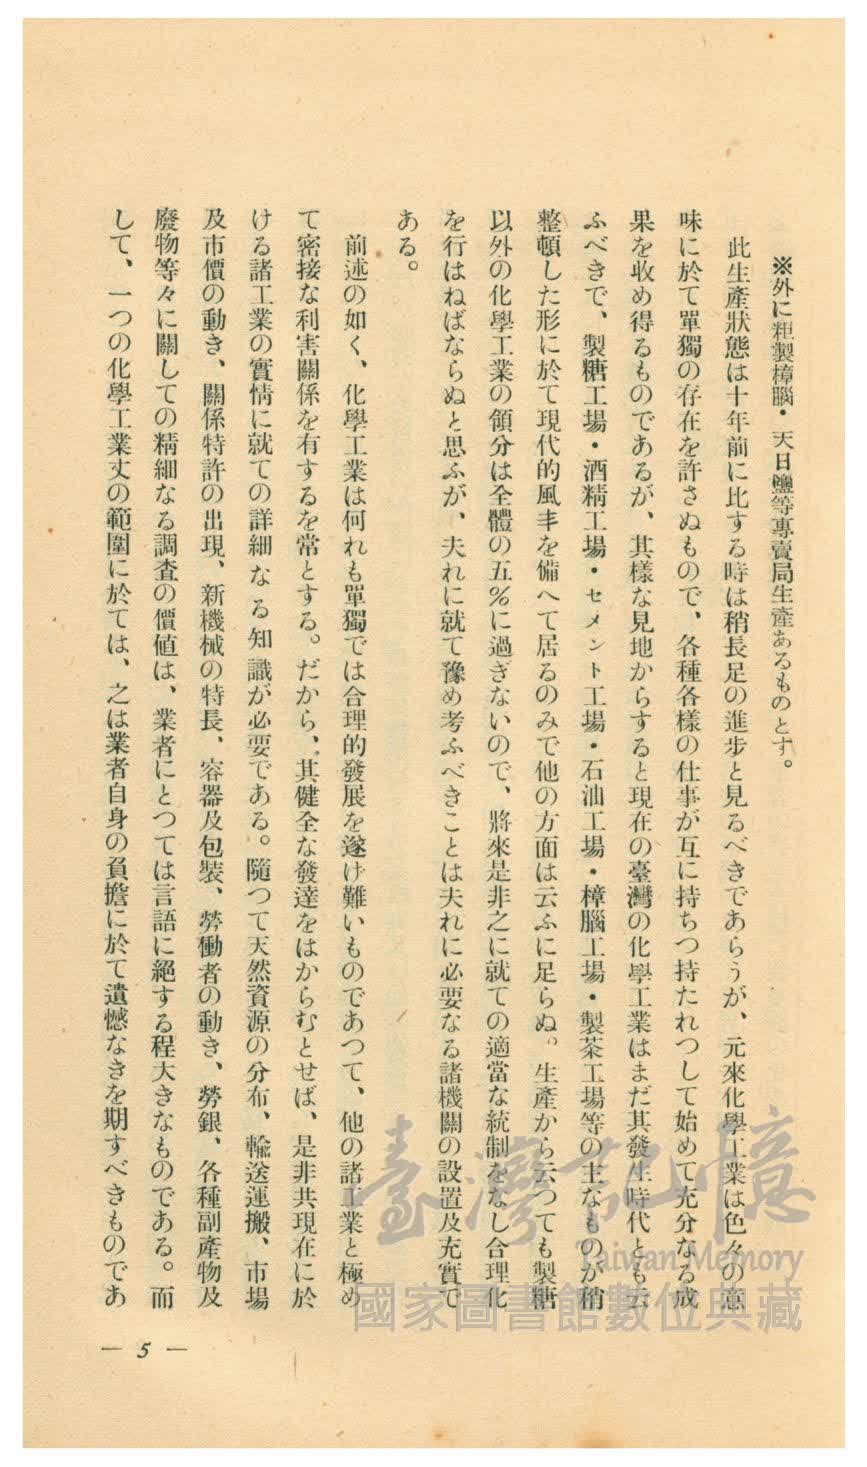 ※外に粗製樟腦・天日鹽等專賣局生產あるものとす。
此生產狀態は十年前に比する時は稍長足の進步と見るべきであらうが、元來化學工業は色々の意
味に於て單獨の存在を許さぬもので、各種各樣の仕事が互に持ちつ持たれつして始めて充分なる成
果を收め得るものであるが、其樣な見地からすると現在の臺灣の化學工業はまだ其發生時代とも云
ふべきで、製糖工場・酒精工場・セメント工場・石油工場・樟腦工場・製茶工場等の主なものが稍
整頓した形に於て現代的風丰を備へて居るのみで他の方面は云ふに足らぬ。生產から云つても製糖
以外の化學工業の領分は全體の五%に過ぎないので、將來是非之に就ての適當な統制をなし合理化
を行はねばならぬと思ふが、夫れに就て豫め考ふべきことは夫れに必要なる諸機關の設置及充實で
ある。
前述の如く、化學工業は何れも單獨では合理的發展を遂け難いものであつて、他の諸工業と極め
て密接な利害關係を有するを常とする。だから、其健全な發達をはからむとせば、是非共現在に於
ける諸工業の實情に就ての詳細なる知識が必要である。隨つて天然資源の分布、輸送運搬、市場
及市價の動き、關係特許の出現、新機械の特長、容器及包裝、勞働者の動き、勞銀、各種副產物及
廢物等々に關しての精細なる調査の價値は、業者にとつては言語に絕する程大きなものである。而
して、一つの化學工業丈の範圍に於ては、之は業者自身の負擔に於て遺憾なきを期すべきものであ
— 5 —
臺灣記憶
Taiwan Memory
國家圖書館數位典藏